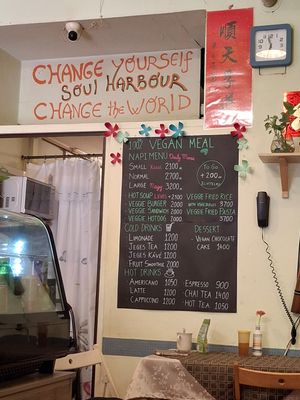 CHANGE YOURSELF
SOUL HARBOUR
CHANGE the WORLD
順天
100% VEGAN MEAL
NAPI MENU Daily Menu
SMALL Kicsi 2100
NORMAL 2700
LARGE Nagy 3200
HOT SOUP LEVES +2100
VEGGIE BURGER 2000
VEGGIE SANDWICH 2000
VEGGIE HOTDOG 2000
COLD DRINKS
LIMONADE 1200
JEGES TEA 1200
JEGES KÁVÉ 1200
FRUIT SMOOTHIE 2000
HOT DRINKS
AMERICANO 1050
LATTE 1200
CAPPUCCINO 1200
TO GO
+200
VEGGIE FRIED RICE
3700
VEGGIE FRIED PASTA
3700
DESSERT
- VEGAN CHOCOLATE
CAKE 1400
ESPRESSO 900
CHAI TEA 1400
HOT TEA 1050